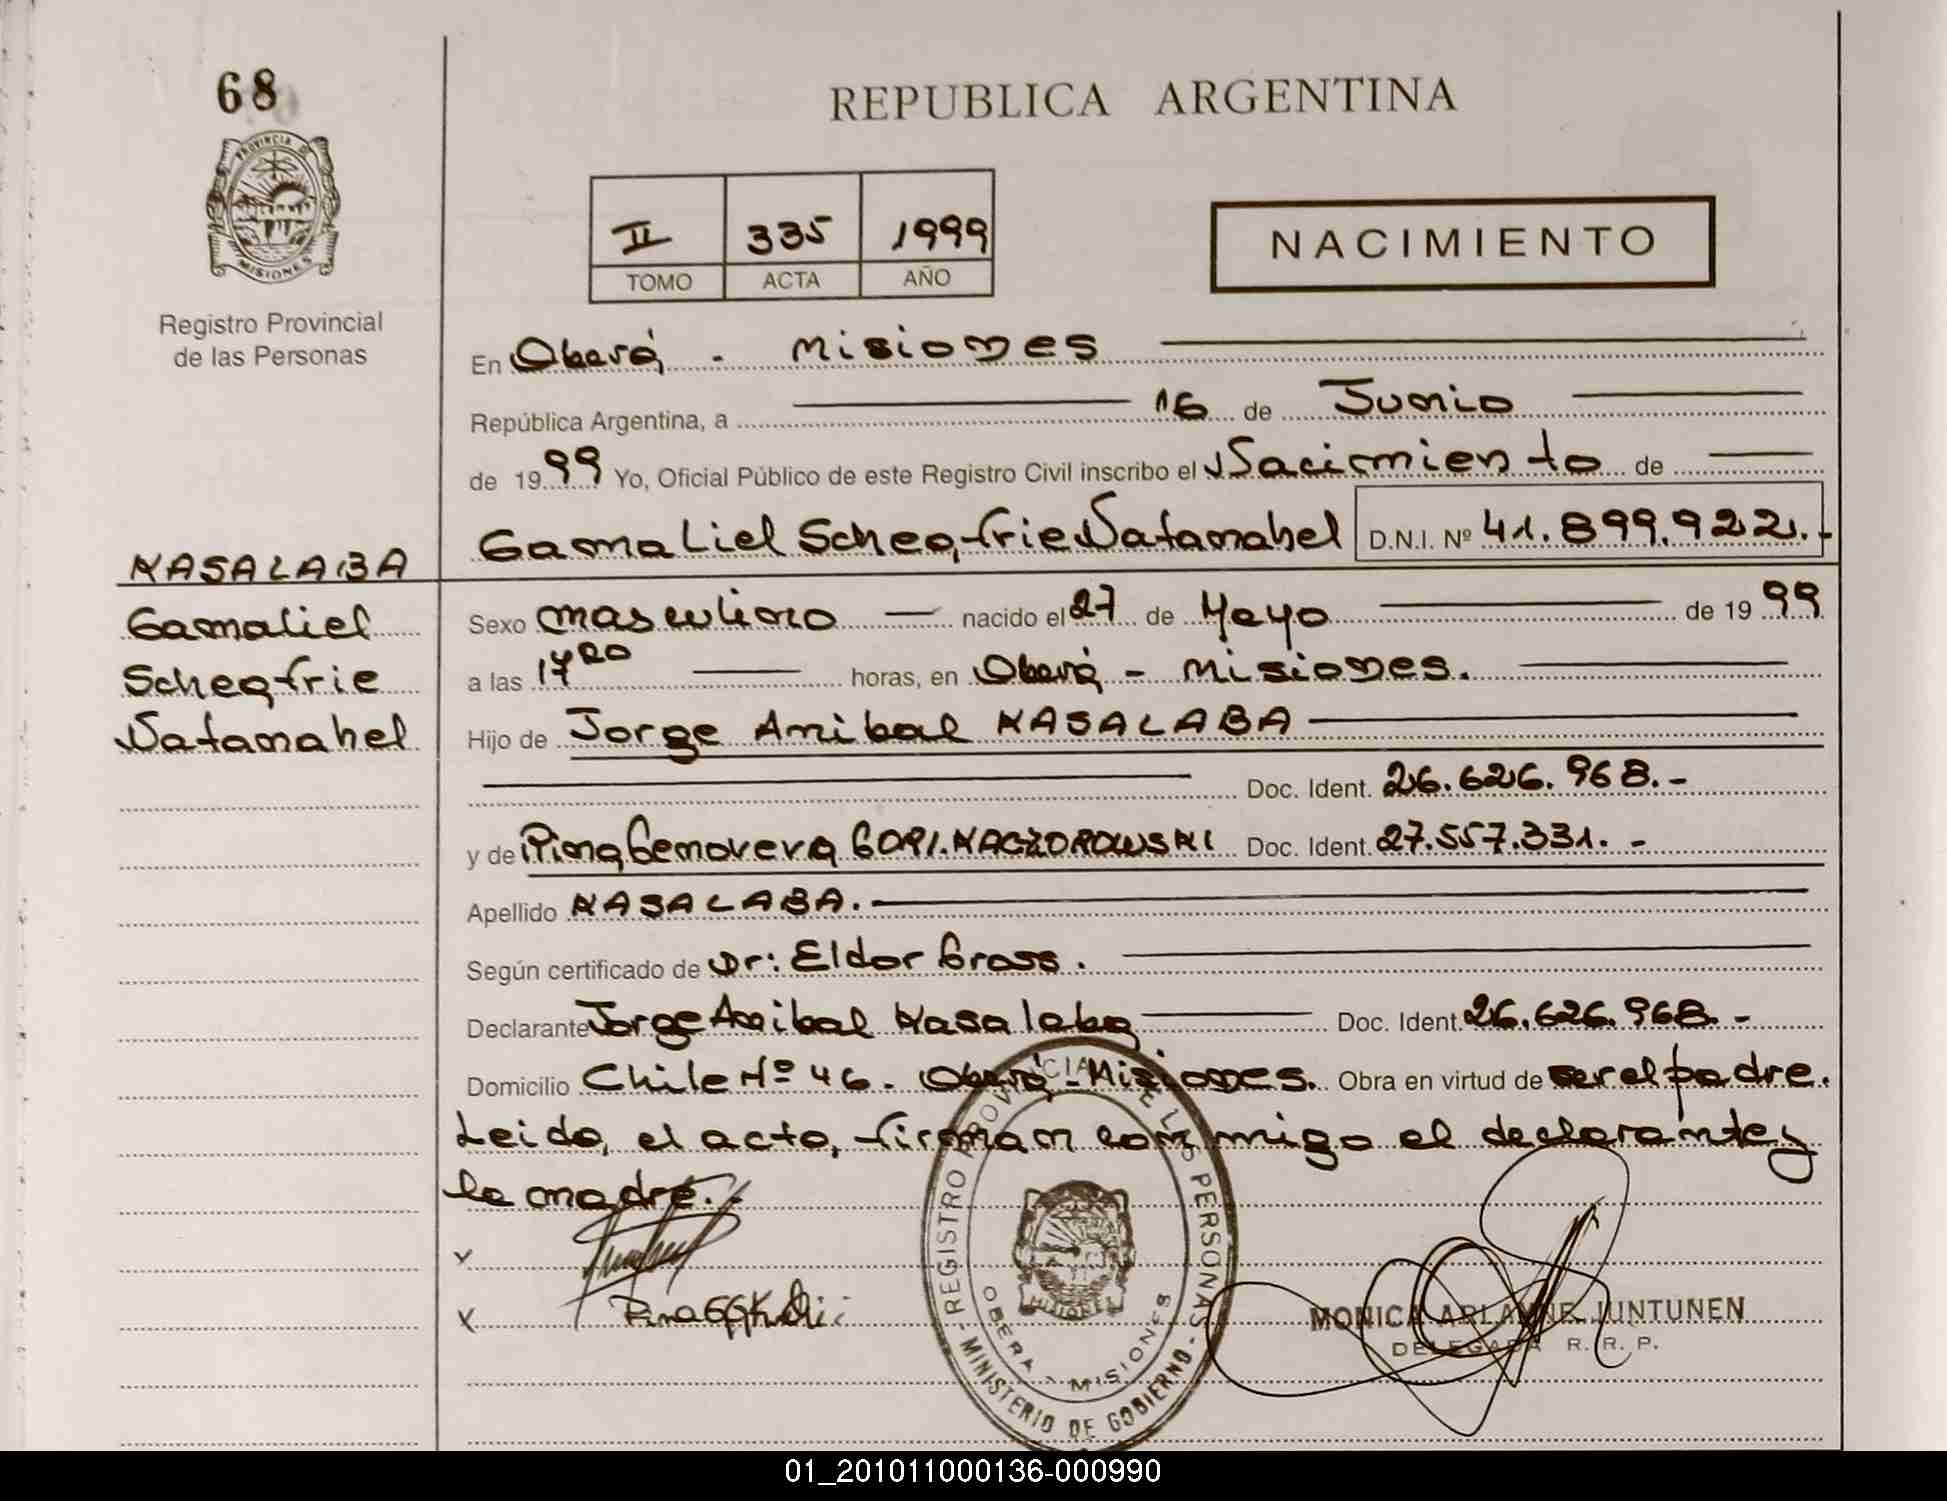 68
REPUBLICA ARGENTINA
PROVINCIA D
MISIONES
Registro Provincial
de las Personas
II 335 1999
TOMO ACTA AÑO
NACIMIENTO
En Oberá - Misiones
República Argentina, a 16 de Junio
de 1999 Yo, Oficial Público de este Registro Civil inscribo el Nacimiento de
Gamaliel Scheqfrie Natanahel D.N.I. Nº 41.899.922.-
KASALABA
Gamaliel
Scheqfrie
Natanahel
Sexo masculino nacido el 27 de Mayo de 1999
a las 17 20 horas, en Oberá - Misiones.
Hijo de Jorge Anibal KASALABA
Doc. Ident. 26.626.968.-
y de Pina Genoveva GORI.KACZOROWSKI Doc. Ident. 27.557.331.-
Apellido KASALABA.
Según certificado de Dr: Eldor Gross.
Declarante Jorge Anibal Kasalaba Doc. Ident. 26.626.968.-
Domicilio Chile Nº 46. Oberá - Misiones. Obra en virtud de ser el padre.
Leido, el acto, firman conmigo el declarante y
la madre.-
x
x
REGISTRO PROVINCIAL DE LAS PERSONAS
OBERA - MISIONES
- MINISTERIO DE GOBIERNO -
MISIONES
MONICA ARLAYNE JUNTUNEN
DELEGADA R. R. P.
01_201011000136-000990